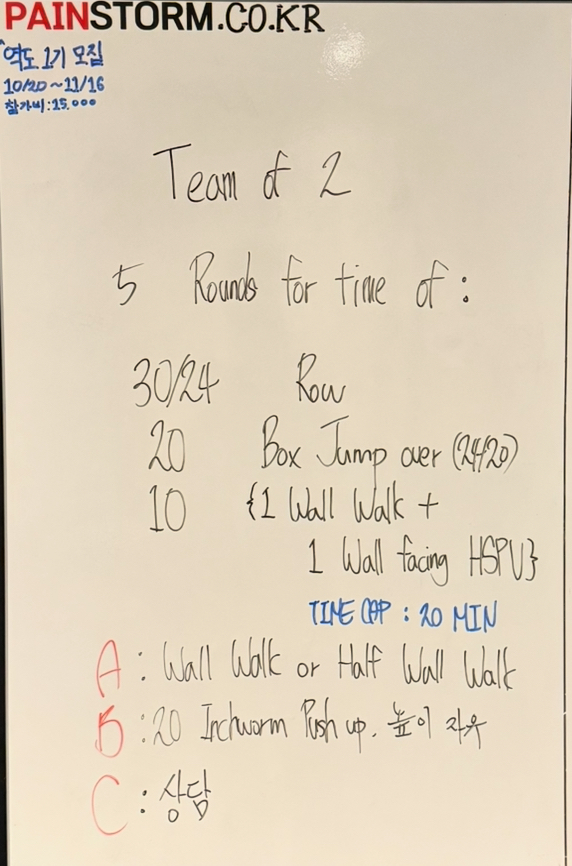 PAINSTORM.CO.KR
역도 1기 모집
10/20~11/16
참가비:15.000
Team of 2
5 Rounds for time of :
30/24 Row
20 Box Jump over (24/20)
10 {1 Wall Walk +
1 Wall facing HSPU}
TIME CAP : 20 MIN
A : Wall Walk or Half Wall Walk
B : 20 Inchworm Push up. 높이 자유
C : 상담